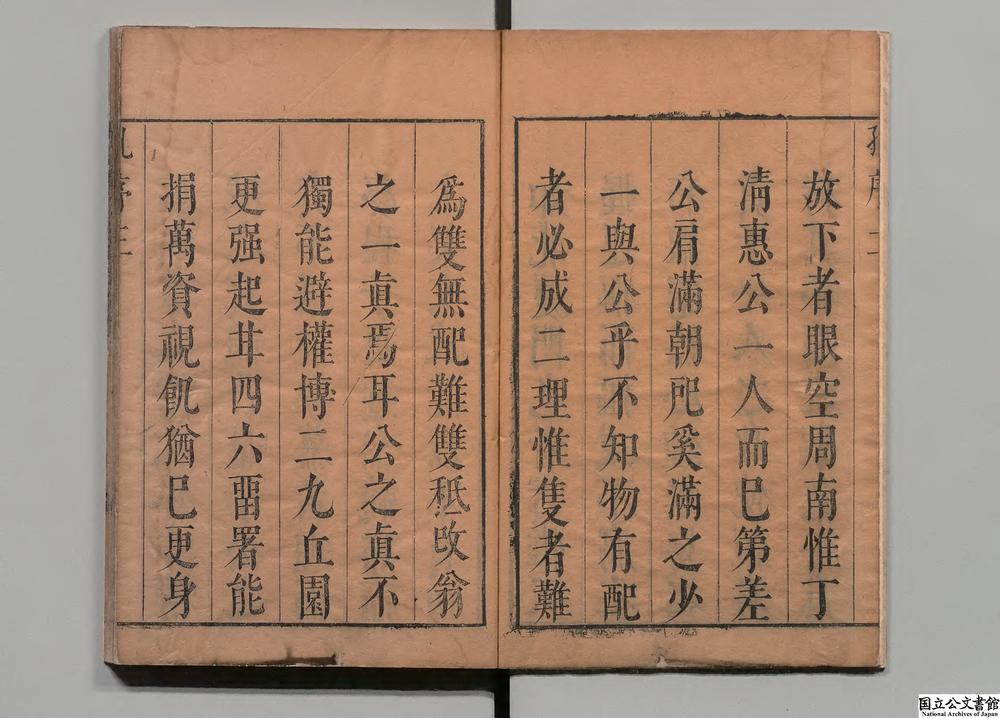 放下者眼空周南惟丁
清惠公一人而已第差
公肩滿朝咫奚滿之少
一與公乎不知物有配
者必成二理惟隻者難
為雙無配難雙秪攷翁
之一眞焉耳公之眞不
獨能避權博二九丘園
更强起廿四六畱署能
捐萬資視飢猶已更身
国立公文書館
National Archives of Japan